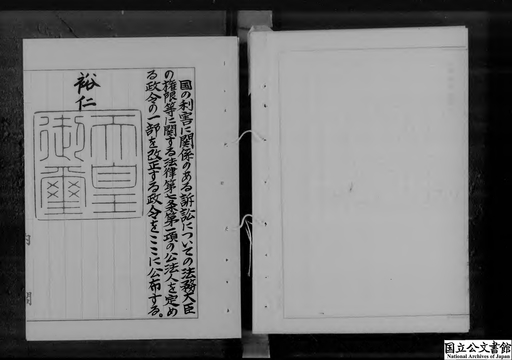 国の利害に関係のある訴訟についての法務大臣
の権限等に関する法律第七条第一項の公法人を定め
る政令の一部を改正する政令をここに公布する。
裕仁
天皇
御璽
国立公文書館
National Archives of Japan